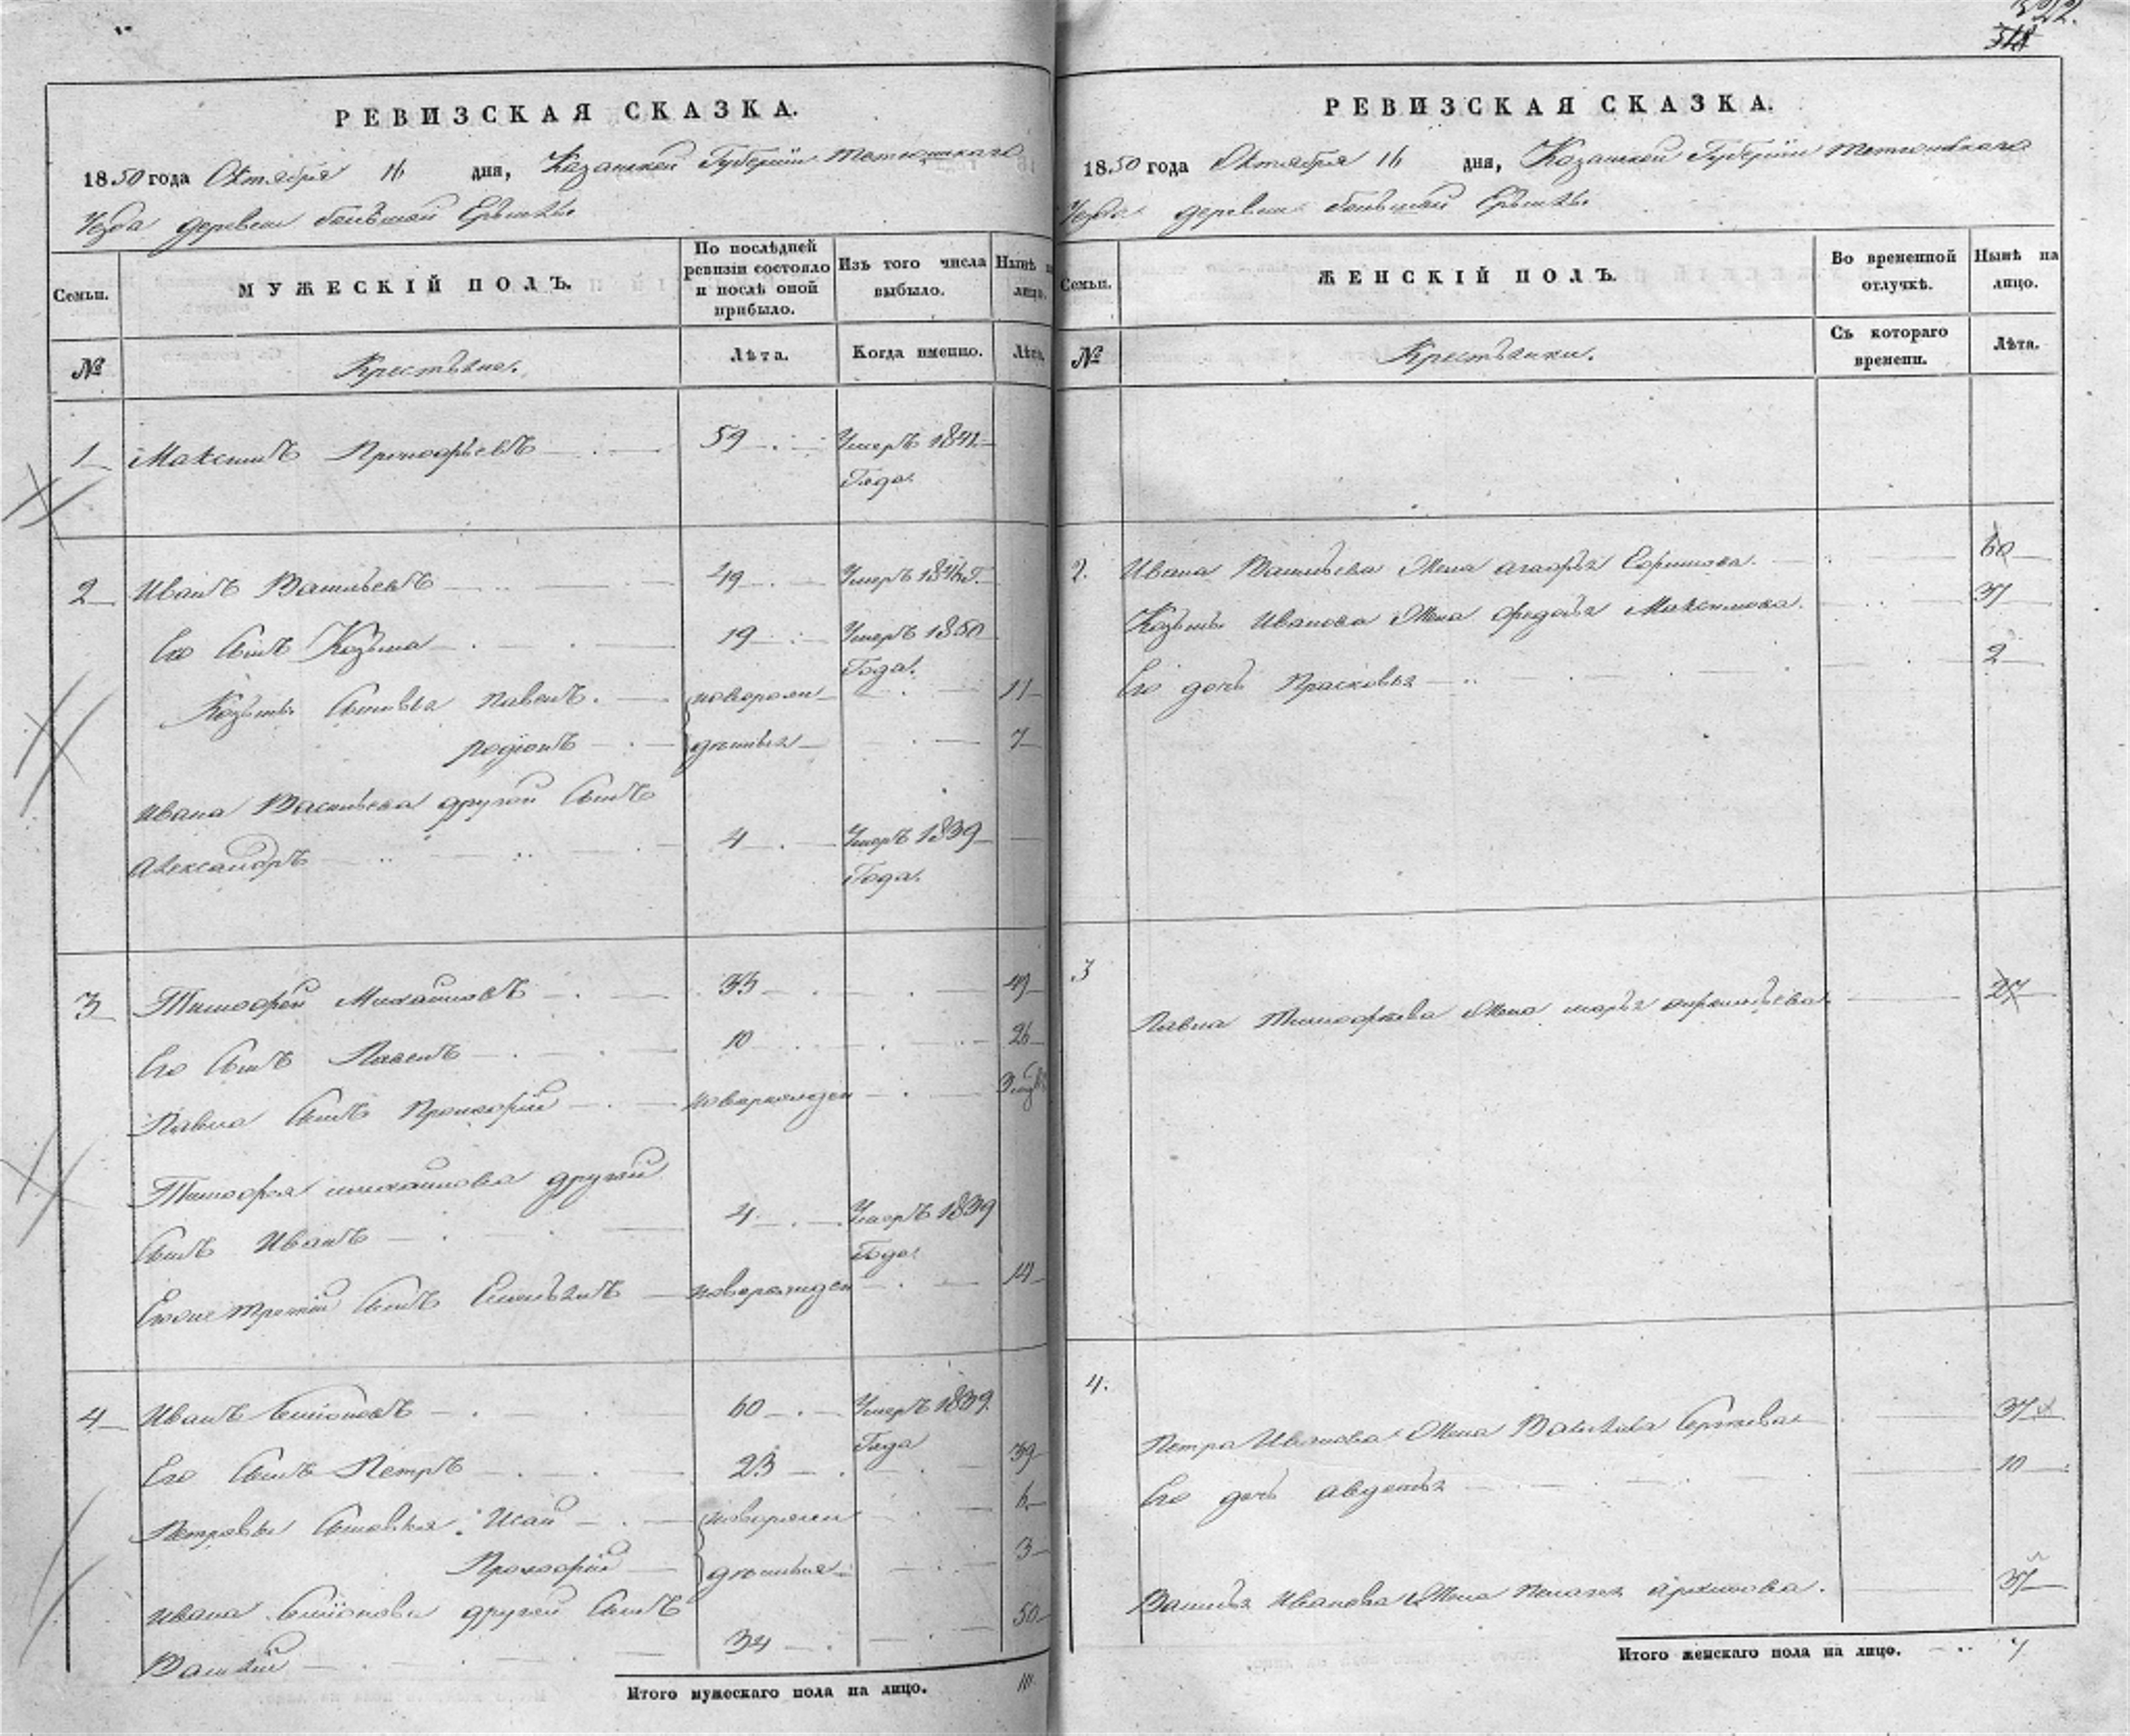 322.
РЕВИЗСКАЯ СКАЗКА.
1850 года Октября 16 дня, Казанской Губернiи Тетюшскаго
Уезда деревни большой
Семьи.
МУЖЕСКІЙ ПОЛЪ.
По послѣдней ревизіи состояло и послѣ оной прибыло.
Изъ того числа выбыло.
Нынѣ на лицо.
№
Крестьяне.
Лѣта.
Когда именно.
Лѣта.
1 Максимъ Прокофьевъ 59 Умеръ 1841
Года.
2 Иванъ Васильевъ 49 Умеръ 1846 Г.
Его сынъ Козьма 19 Умеръ 1850
Года.
Козьмы сыновья Павелъ. новорож 11
родіонъ денныя 7
Ивана Васильева другой сынъ
Александръ 4 Умеръ 1839
Года.
3 Тимофей Михайловъ 33 49
Его сынъ Павелъ 10 26
Павла сынъ Прокофій новорожден
Тимофея михайлова другой
сынъ Иванъ 4 Умеръ 1839
Года.
Его же третій сынъ Емельянъ новорожден 14
4 Иванъ Семіоновъ 60 Умеръ 1839
Года
Его сынъ Петръ 23 39
Петровы сыновья Исай новорож 6
Прокофій денныя 3
Ивана Семіонова другой сынъ 50
Василій 34
Итого мужескаго пола на лицо.
РЕВИЗСКАЯ СКАЗКА.
1850 года Октября 16 дня, Казанской Губернiи Тетюшскаго
Уезда деревни большой
Семьи.
ЖЕНСКІЙ ПОЛЪ.
Во временной отлучкѣ.
Нынѣ на лицо.
№
Крестьянки.
Съ котораго времени.
Лѣта.
2. Ивана Васильева Жена 60
Козьмы Иванова Жена федосья Максимова. 37
Его дочь Прасковья 2
3
Павла Тимофеева Жена марья 27
4.
Петра Иванова Жена Василиса Сергеева 37
Его дочь авдотья 10
Василья Иванова Жена пелагея архипова. 37
Итого женскаго пола на лицо. 7